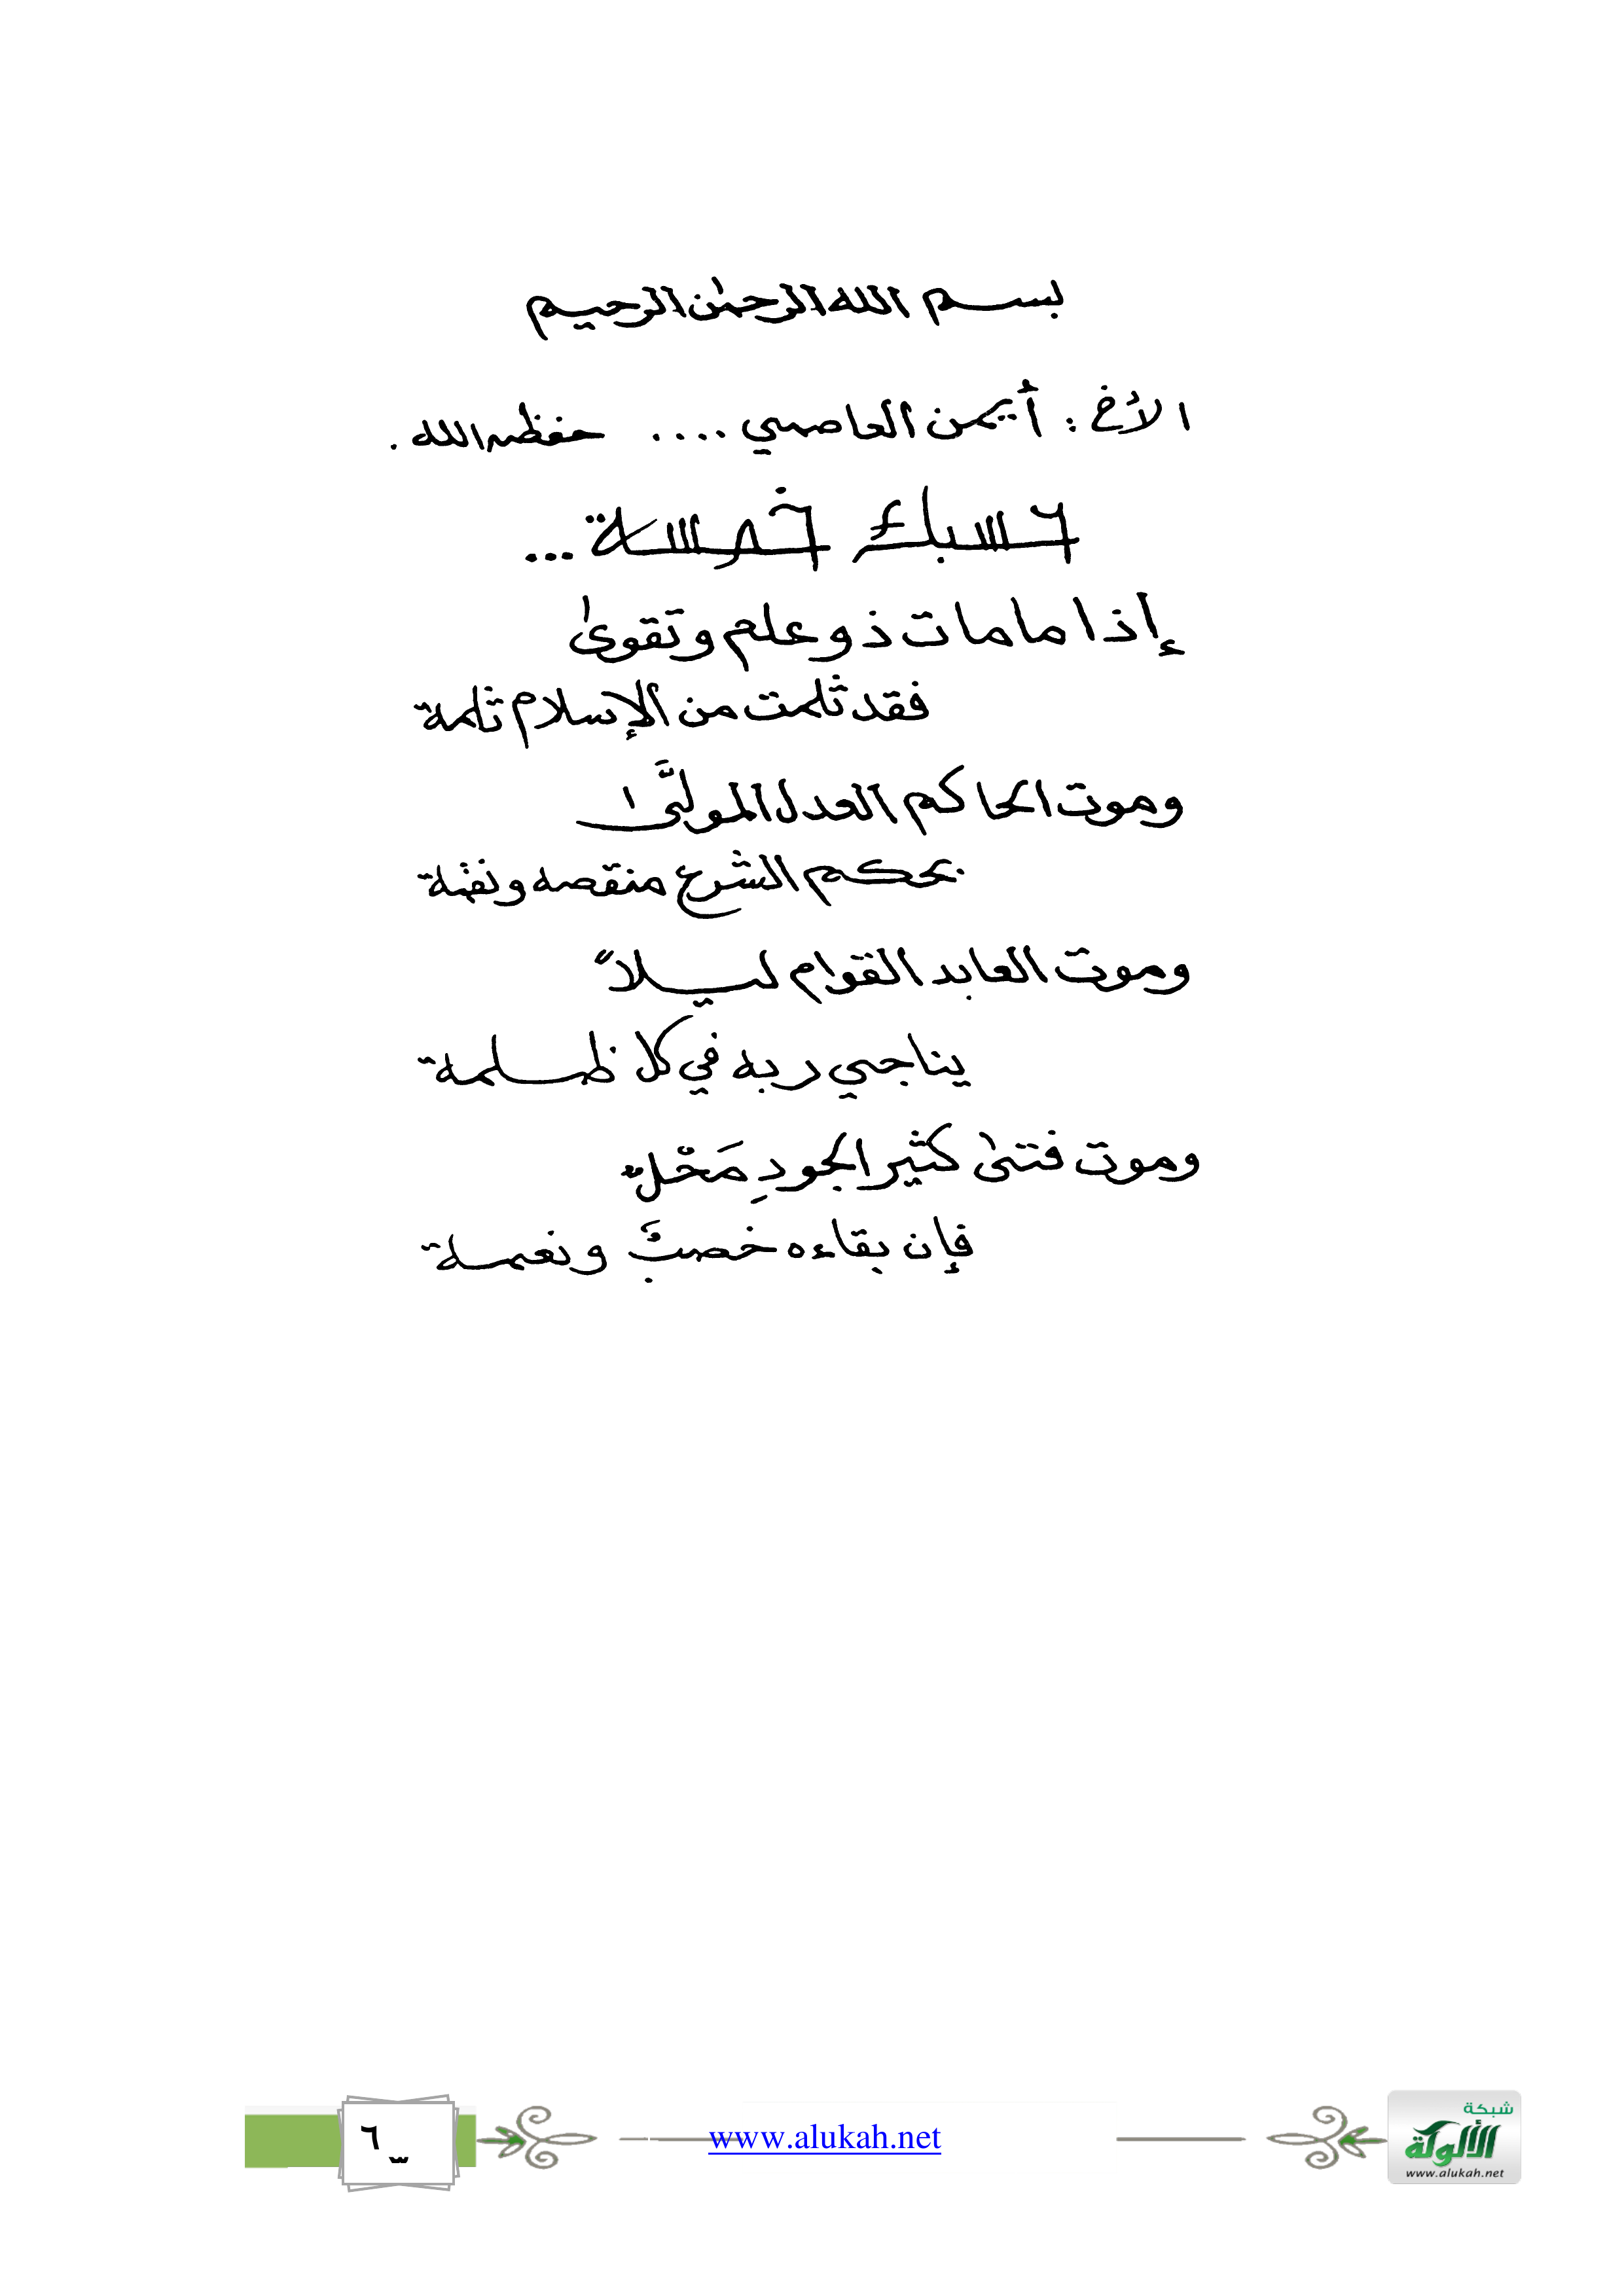 بسم الله الرحمٰن الرحيم
الأخ : أيمن العاصمي .... حفظه الله .
حسبك خمسة ...
إذا ما مات ذو علم وتقوىٰ
فقد ثلمت من الإسلام ثلمة
وموت الحاكم العدل المولَّىٰ
بحكم الشرع منقصه ونقمة
وموت العابد القوام ليلاً
يناجي ربه في كل ظلمة
وموت فتىٰ كثير الجودِ مَحْلٌ
فإن بقاءه خصبٌ ونعمة
٦
www.alukah.net
شبكة
الألوكة
www.alukah.net